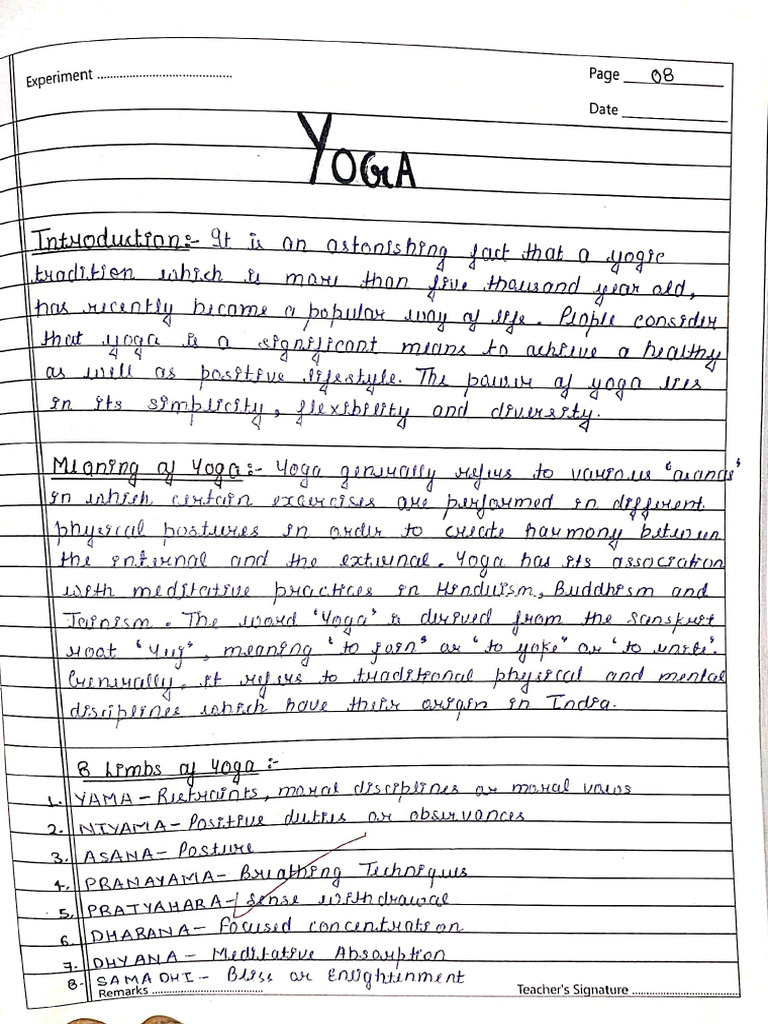 Experiment ........................................
Page 08
Date
YOGA
Introduction:- It is an astonishing fact that a yogic
tradition which is more than five thousand year old,
has recently become a popular way of life. People consider
that yoga is a significant means to achieve a healthy
as well as positive lifestyle. The power of yoga lies
in its simplicity, flexibility and diversity.
Meaning of Yoga:- Yoga generally refers to various 'asanas'
in which certain excercises are performed in different
physical postures in order to create harmony between
the internal and the external. Yoga has its association
with meditative practices in Hinduism, Buddhism and
Jainism. The word 'Yoga' is derived from the Sanskrit
root 'Yuj', meaning 'to join' or 'to yoke' or 'to unite'.
Generally, it refers to traditional physical and mental
disciplines which have their origin in India.
8 Limbs of Yoga :-
1. YAMA - Restraints, moral disciplines or moral vows
2. NIYAMA - Positive duties or observances
3. ASANA - Posture
4. PRANAYAMA - Breathing Techniques
5. PRATYAHARA - Sense withdrawal
6. DHARANA - Focused concentration
7. DHYANA - Meditative Absorption
8. SAMADHI - Bliss or Enlightenment
Remarks ............................
Teacher's Signature ............................